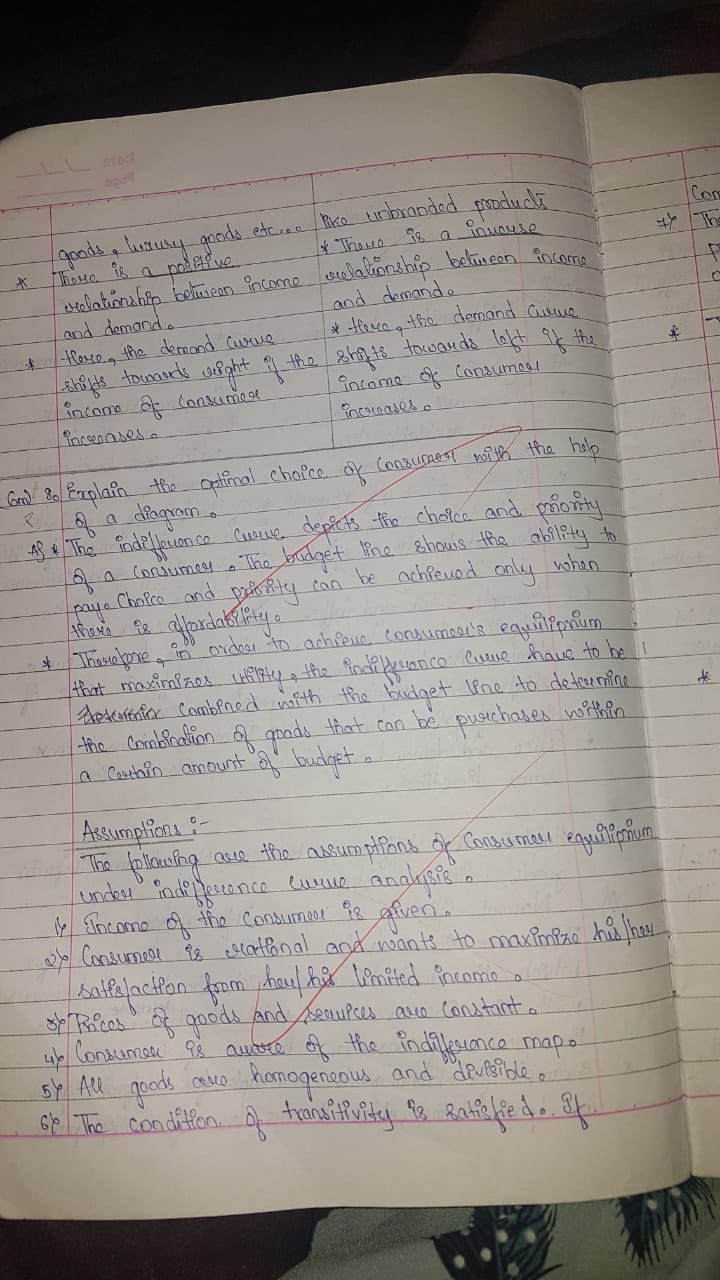 Date
Page
goods, luxury goods etc....
* There is a positive
relationship between income
and demand.
* Here, the demand curve
shifts towards right if the
income of consumer
increases.
like unbranded products
* There is a inverse
relationship between income
and demand.
* Here, the demand curve
shifts towards left if the
income of consumer
increases.
8. Explain the optimal choice of consumer with the help
of a diagram.
* The indifference curve depicts the choice and priority
of a consumer. The budget line shows the ability to
pay. Choice and priority can be achieved only when
there is affordability.
* Therefore, in order to achieve consumer's equilipnium
that maximizes utility, the indifference curve have to be
combined with the budget line to determine
the combination of goods that can be purchases within
a certain amount of budget.
Assumptions :-
The following are the assumptions of consumer equilipnium
under indifference curve analysis.
1) Income of the consumer is given.
2) Consumer is rational and wants to maximize his/her
satisfaction from her/his limited income.
3) Prices of goods and are constant.
4) Consumer is aware of the indifference map.
5) All goods are homogeneous and divisible.
6) The condition of transitivity is satisfied. If
Con
7) Th
*
*